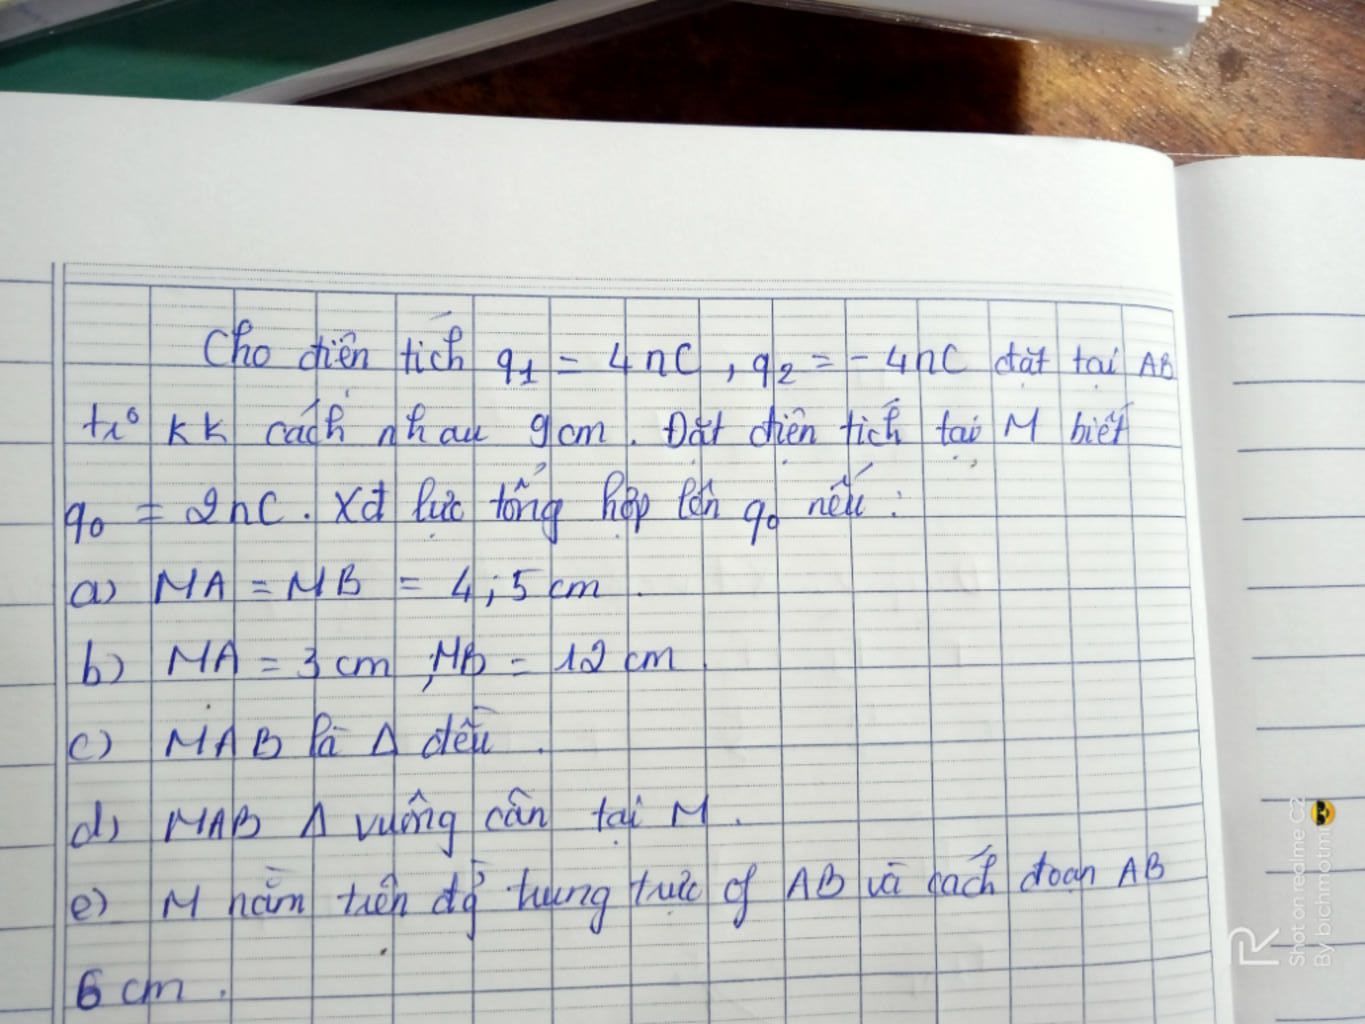 Cho điện tích q1 = 4nC, q2 = - 4nC đặt tại AB
trº KK cách nhau 9cm. Đặt điện tích tại M biết
q0 = 2nC. Xđ lực tổng hợp lên q0 nếu:
a) MA = MB = 4,5cm.
b) MA = 3 cm, MB = 12 cm
c) MAB là Δ đều.
d) MAB Δ vuông cân tại M.
e) M nằm trên đg trung trực of AB và cách đoạn AB
6 cm.
R
Shot on realme C2
By bichmotmi